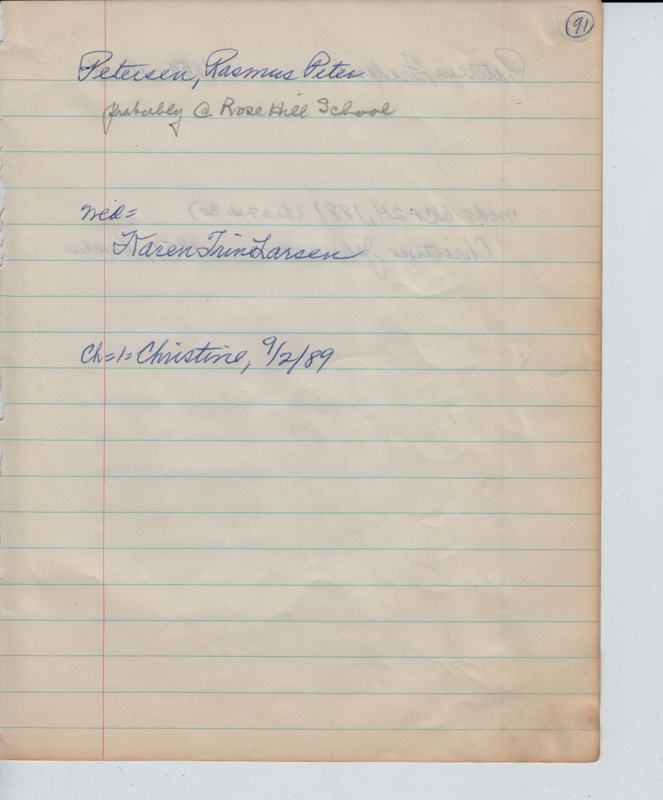 91
Petersen, Rasmus Peter
probably @ Rose Hill School
med=
Karen Trine Larsen
Ch=1=Christine, 9/2/89